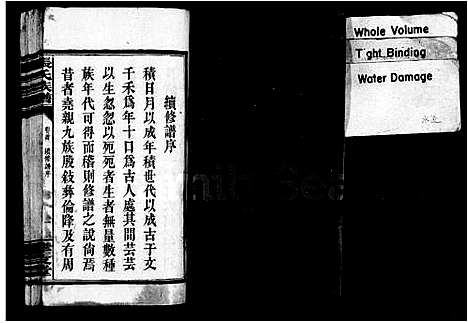 續修譜序
積日月以成年積世代以成古于文
千禾為年十口為古人處其間芸芸
以生忽忽以死死者生者無量數種
族年代可得而稽則修譜之說尙焉
昔者堯親九族殷敍彝倫降及有周
張氏族譜
續修譜序
Whole Volume
Tight Binding
Water Damage
水迹